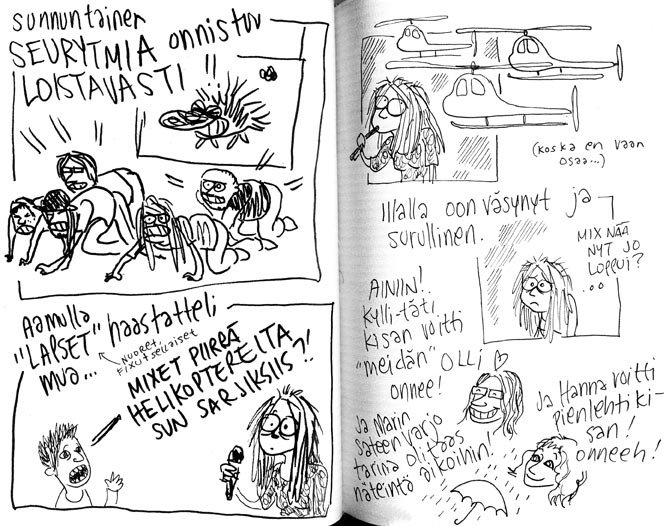 sunnuntainen
SEURYTMIA onnistuu
LOISTAVASTI!!
Aamulla
"LAPSET" haastatteli
mua...
NUORET,
FIXUT SELLAISET
MIXET PIIRRÄ
HELIKOPTEREITA
SUN SARJIKSIIS?!
(KOSKA EN VAAN
OSAA...)
Illalla oon väsynyt ja
surullinen.
MIX NÄÄ
NYT JO
LOPPUI?
AINIIN!
Kylli-täti
kisan voitti
"meidän" OLLI
onnee!
Ja Marin
sateenvarjo
tarina oli taas
näteintä aikoihin!
Ja Hanna voitti
pienlehtiki-
san!
onneeh!